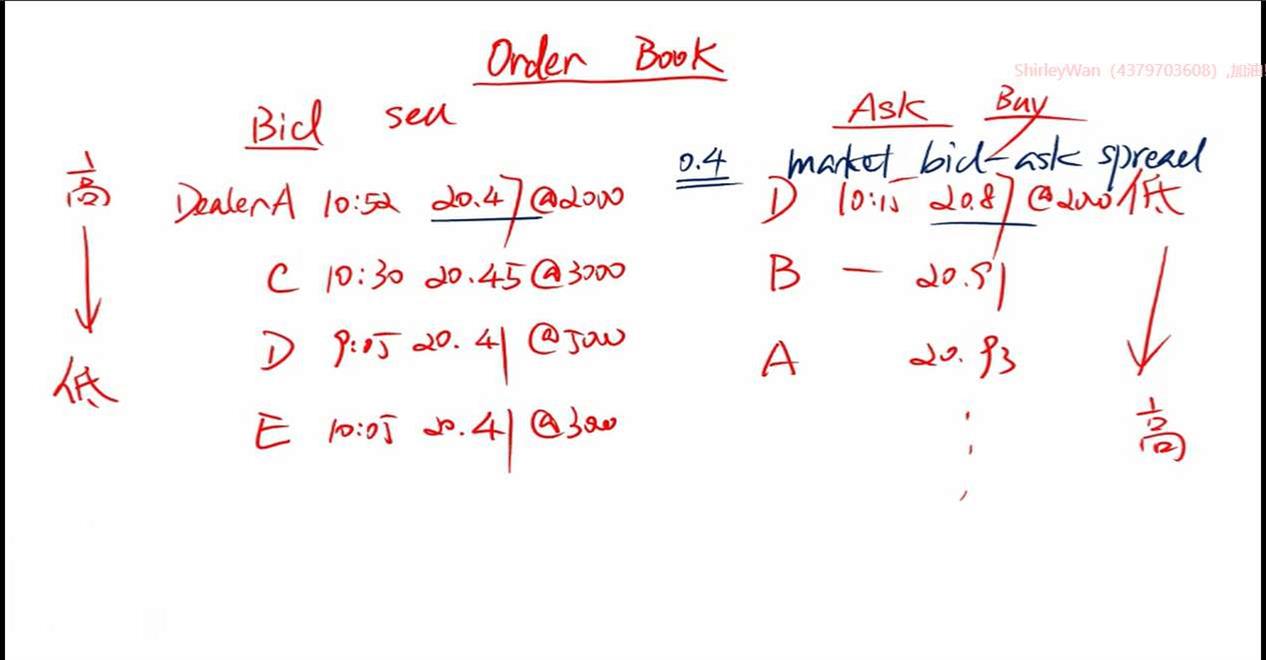 Order Book
ShirleyWan（4379703608）,加油!
Bid sell
Ask Buy
0.4 market bid-ask spread
高
Dealer A 10:52 20.47 @2000
D 10:15 20.87 @2000 低
C 10:30 20.45 @3000
B — 20.91
D 9:05 20.41 @500
A 20.93
低
E 10:05 20.41 @300
高